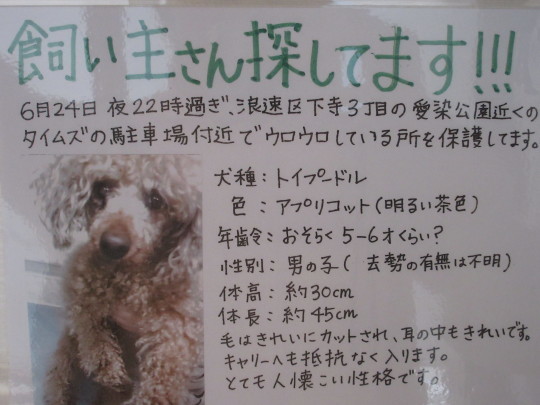 飼い主さん探してます!!!
6月24日 夜22時過ぎ、浪速区下寺3丁目の愛染公園近くの
タイムズの駐車場付近でウロウロしている所を保護してます。
犬種:トイプードル
色:アプリコット(明るい茶色)
年齢令:おそらく5-6才くらい?
性別:男の子(去勢の有無は不明)
体高:約30cm
体長:約45cm
毛はきれいにカットされ、耳の中もきれいです。
キャリーへも抵抗なく入ります。
とても人懐こい性格です。